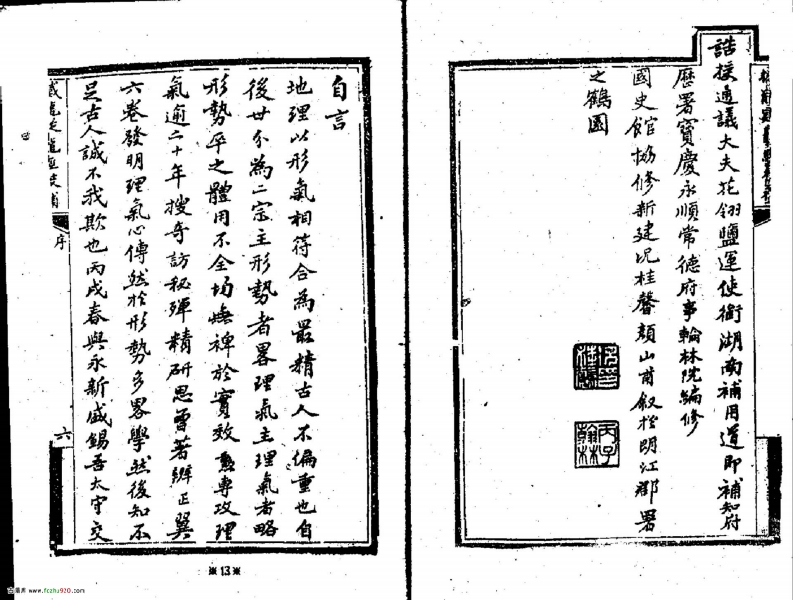 誥授通議大夫花翎鹽運使銜湖南補用道即補知府
歷署寶慶永順常德府事翰林院編修
國史館協修新建況桂馨顏山甫敘於明江郡署
之鶴園
丙子翰林
自言
地理以形氣相符合為最精古人不偏重也自
後世分為二宗主形勢者畧理氣主理氣者略
形勢平之體用不全均無裨於實效專攻理
氣逾二十年搜奇訪秘殫精研思曾著辨正翼
六卷發明理氣心傳然於形勢多畧學然後知不
足古人誠不我欺也丙戌春與永新盛錫吾太守交
序
六
※13※
www.fczhu920.com